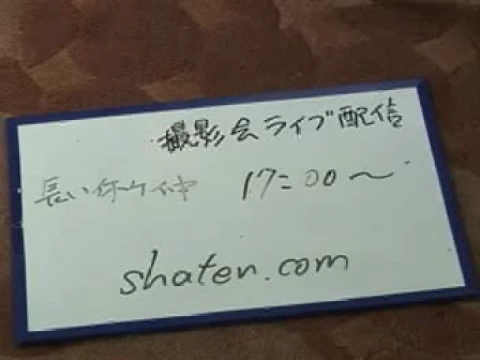 撮影会ライブ配信
長い休ケ中 17:00～
shaten.com